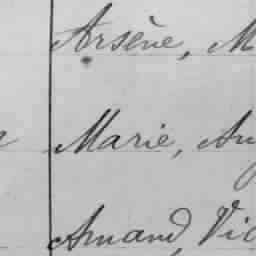 Arsène, M
Marie, Au
Amand, Vic